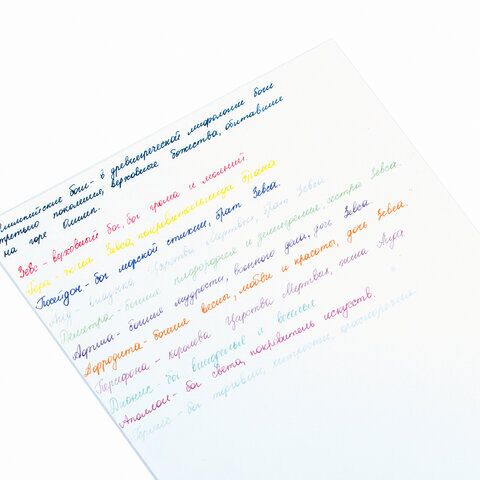 Олимпийские боги - в древнегреческой мифологии боги
третьего поколения, верховные божества, обитавшие
на горе Олимп.
Зевс - верховный бог, бог грома и молний.
Гера - жена Зевса, покровительница брака
Посейдон - бог морской стихии, брат Зевса.
Аид - владыка Царства Мертвых, брат Зевса.
Деметра - богиня плодородия и земледелия, сестра Зевса.
Афина - богиня мудрости, военного дела, дочь Зевса
Афродита - богиня весны, любви и красоты, дочь Зевса.
Персефона - королева Царства Мертвых, жена Аида,
Дионис - бог виноделия и веселья
Аполлон - бог света, покровитель искусств.
Гермес - бог торговли, хитрости,